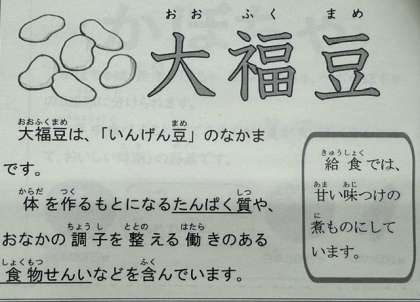 おお ふく まめ
大福豆
おおふくまめ まめ
大福豆は、「いんげん豆」のなかま
です。
からだ つく しつ
体を作るもとになるたんぱく質や、
ちょう し ととの はたら
おなかの調子を整える働きのある
しょくもつ ふく
食物せんいなどを含んでいます。
きゅうしょく
給食では、
あま あじ
甘い味つけの
に
煮ものにして
います。